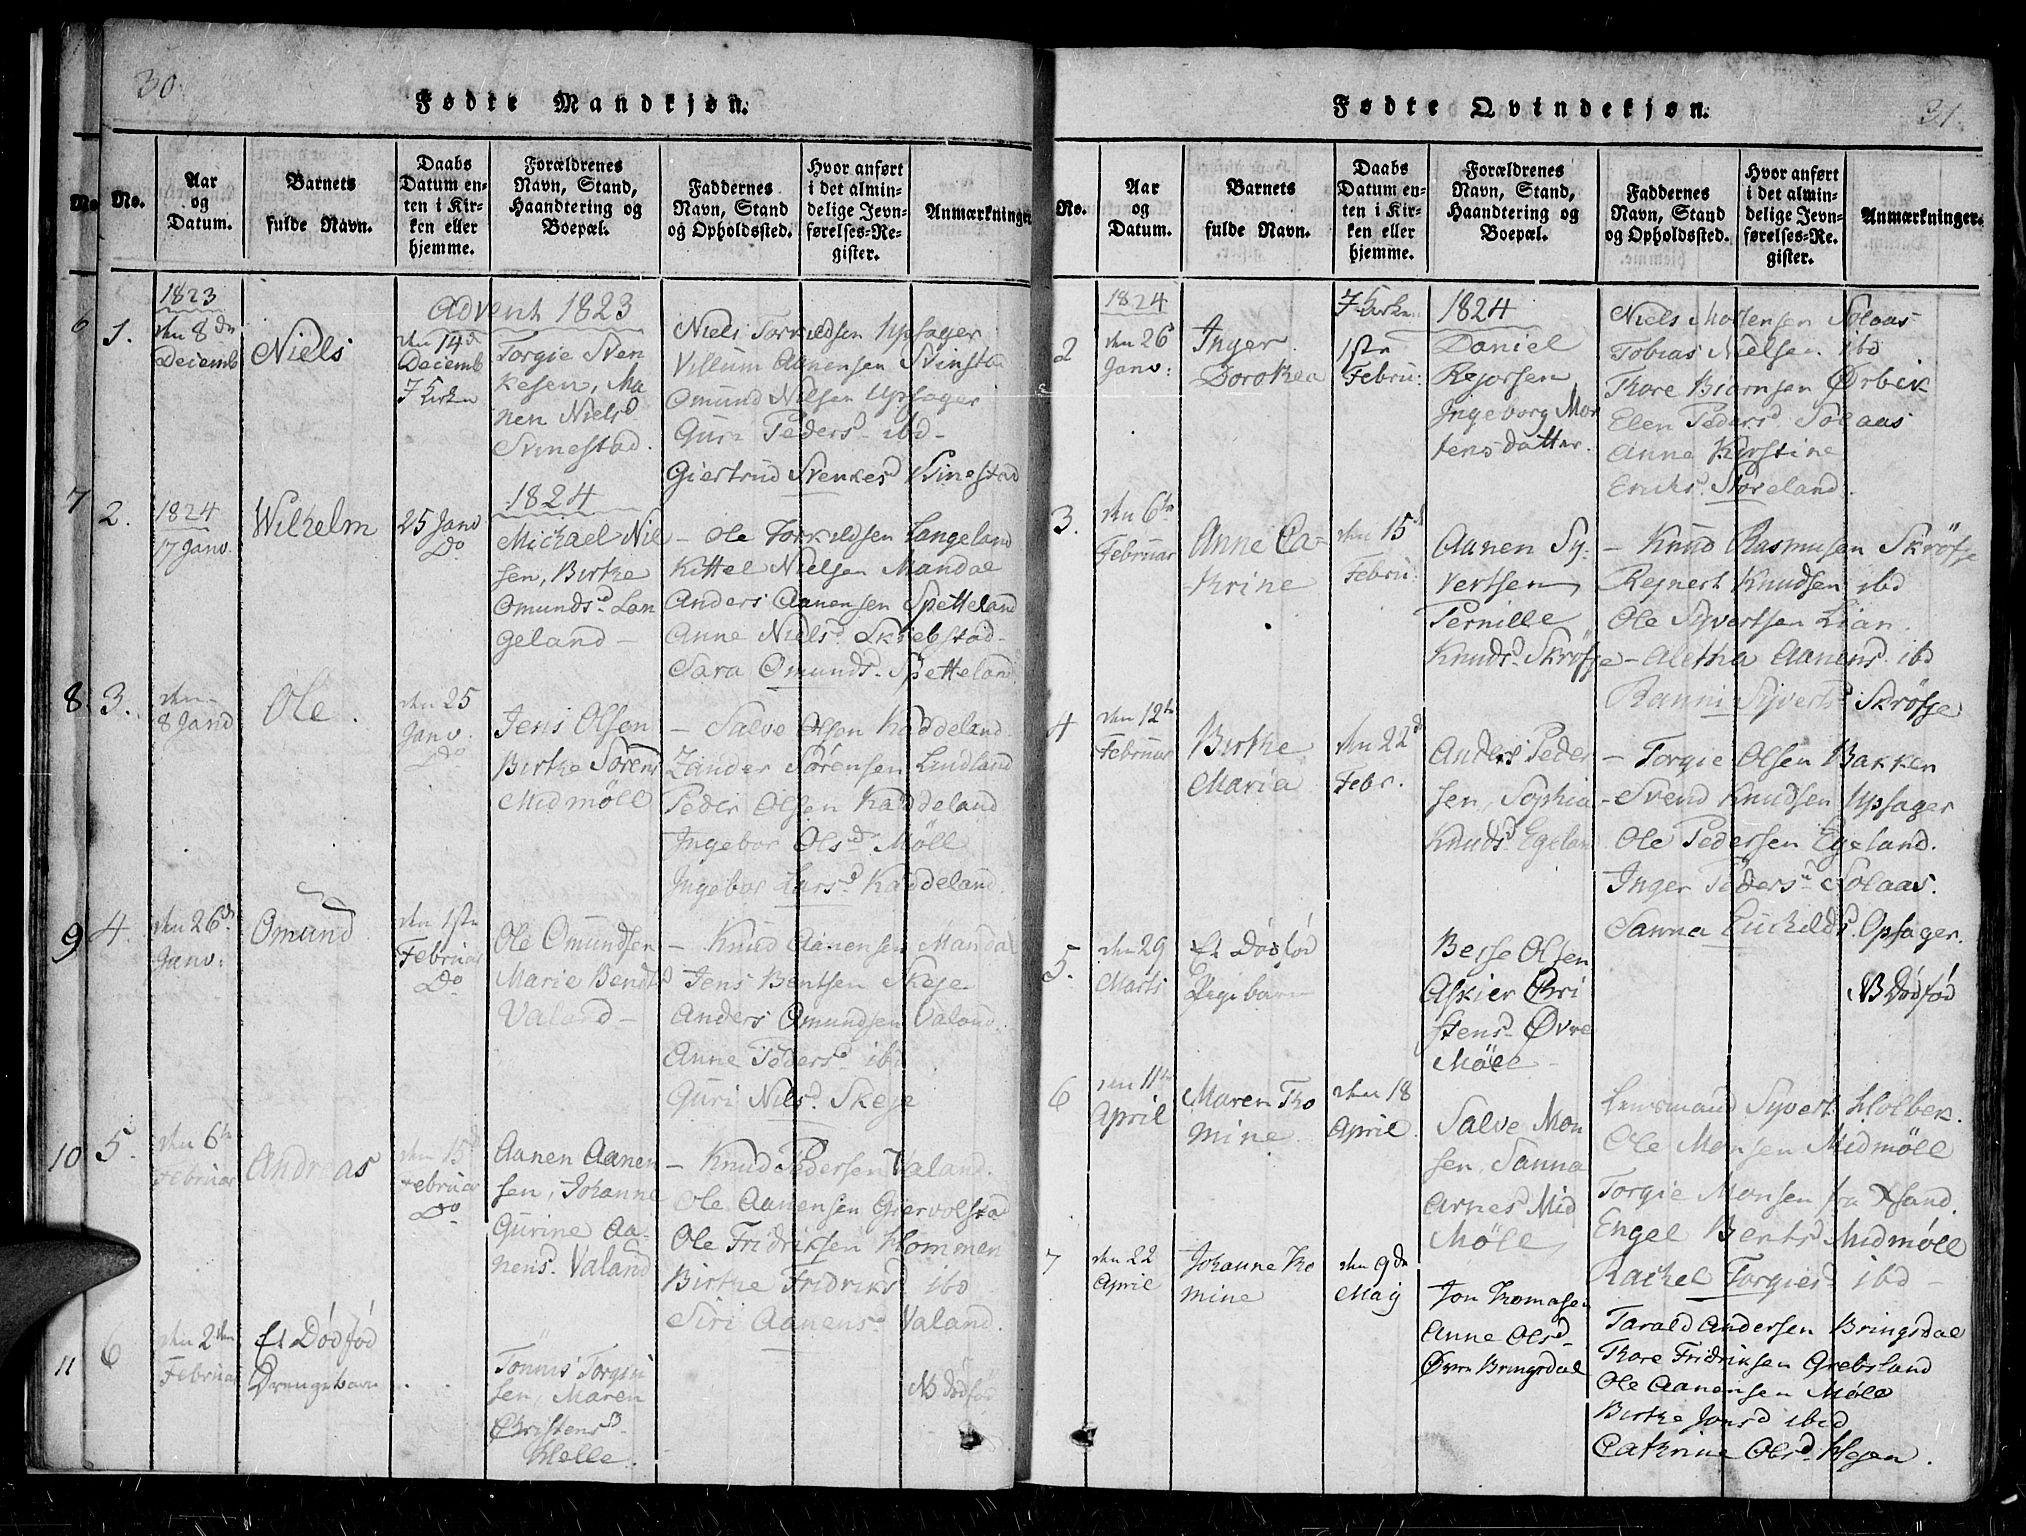 30
Fødte Mandkjøn.
No.
No.
Aar og Datum.
Barnets fulde Navn.
Daabs Datum enten i Kirken eller hjemme.
Forældrenes Navn, Stand, Haandtering og Boepæl.
Faddernes Navn, Stand og Opholdssted.
Hvor anført i det almindelige Jevnførelses-Register.
Anmærkninger
Advent 1823
6
1.
1823
den 8de
Decemb
Niels
den 14de
Decemb
I Kirken
Torgie Sven
kesen, Ma
ren Nielsd
Svinestad.
Niels Torkildsen Upsager
Villum Aanensen Svinsta
Omund Nilsen Upsager
Guri Pedersd. ibd
Giertrud Svenkesd Svinestad
7
2.
1824
17 Janv.
Wilhelm
25 Janv
Do
1824
Michael Niel
sen, Birthe
Omundsd. Lan
geland
Ole Torkildsen Langeland
Kittel Nielsen Mandal
Anders Aanensen Spetteland
Anne Nielsd. Skiebstad
Sara Omundsd. Spetteland
8.
3.
den
8 Janv
Ole.
den 25
Janv.
Do
Jens Olsen
Birthe Sørens
Midmøll
Salve Olsen Kaddeland
Zander Sørensen Lindland
Peder Olsen Kaddeland
Ingebor Olsd. Møll
Ingebor Larsd. Kaddeland.
9
4.
den 26de
Janv:
Omund
den 1ste
Februar
Do
Ole Omundsen
Marie Bendtsd
Valand
Knud Aanensen Mandal
Jens Bentsen Skeje
Anders Omundsen Valand
Anne Pedersd. ibd
Guri Nilsd. Skeje
10
5.
den 6te
Februar
Andreas
den 15de
Februar
Do
Aanen Aanen
sen, Johanne
Gurine Aa-
nensd. Valand
Knud Pedersen Valand.
Ole Aanensen Giervolstad
Ole Fridriksen Hommen
Birthe Fridriksd ibd
Siri Aanensd. Valand.
11
6
den 2den
Februar
Et Dødfød
Drengebarn
Tønnis Torgius
sen, Maren
Christensd
Helle.
NB Dødfød
31.
Fødte Qvindekjøn.
No.
Aar og Datum.
Barnets fulde Navn.
Daabs Datum enten i Kirken eller hjemme.
Forældrenes Navn, Stand, Haandtering og Boepæl.
Faddernes Navn, Stand og Opholdssted.
Hvor anført i det almindelige Jevnførelses-Register.
Anmærkninger.
2
1824
den 26de
Janv:
Inger
Dorothea
I Kirken
1ste
Febru:
1824
Daniel
Rejersen
Ingeborg Mor
tensdatter.
Niels Mossensen Solaas
Tobias Nielsen ibd
Thore Biørnsen Ørbek
Elen Pedersd. Solaas
Anne Kirstine
Eriksd. Støreland.
3.
den 6te
Februar
Anne Ca-
thrine
den 15de
Febru:
Aanen Sy-
vertsen,
Pernille
Knudsd. Skrøfje
Knud Rasmusen Skrøfje
Rejnert Knudsen ibd
Ole Syvertsen Lian.
Aletha Aanensd. ibd
Ranni Syvertsd Skrøfje
4
den 12te
Februar
Birthe
Maria
den 22de
Febr.
Anders Peder
sen, Sophia
Knudsd Egeland
Torgie Olsen Bakken
Svend Knudsen Upsager
Ole Pedersen Egeland.
Inger Pedersd Solaas.
Sanna Euchildsd. Opsager.
5.
den 29
Marts
Et Dødfød
Pigebarn
Berje Olsen
Askier Chri
stensd. Øvre
Møll
NB Dødfød
6
den 11te
April
Maren Tho
mine
den 18
April
Salve Mon
sen, Sanna
Arnesd Mid
Møll,
Lensmand Syvert Holbek.
Ole Monsen Midmøll
Torgie Monsen fra Xsand.
Engel Bentsd Midmøll
Rachel Torgiesd ibd
7
den 22
April
Johanne Tho
mine
den 9de
Maj
Jon Thomasen
Anne Olsd
Øvre Bringsdal
Tarald Andersen Bringsdal
Thore Fridriksen Grebsland
Ole Aanensen Møll
Birthe Jonsd ibid
Cathrine Olsd. Hejen.